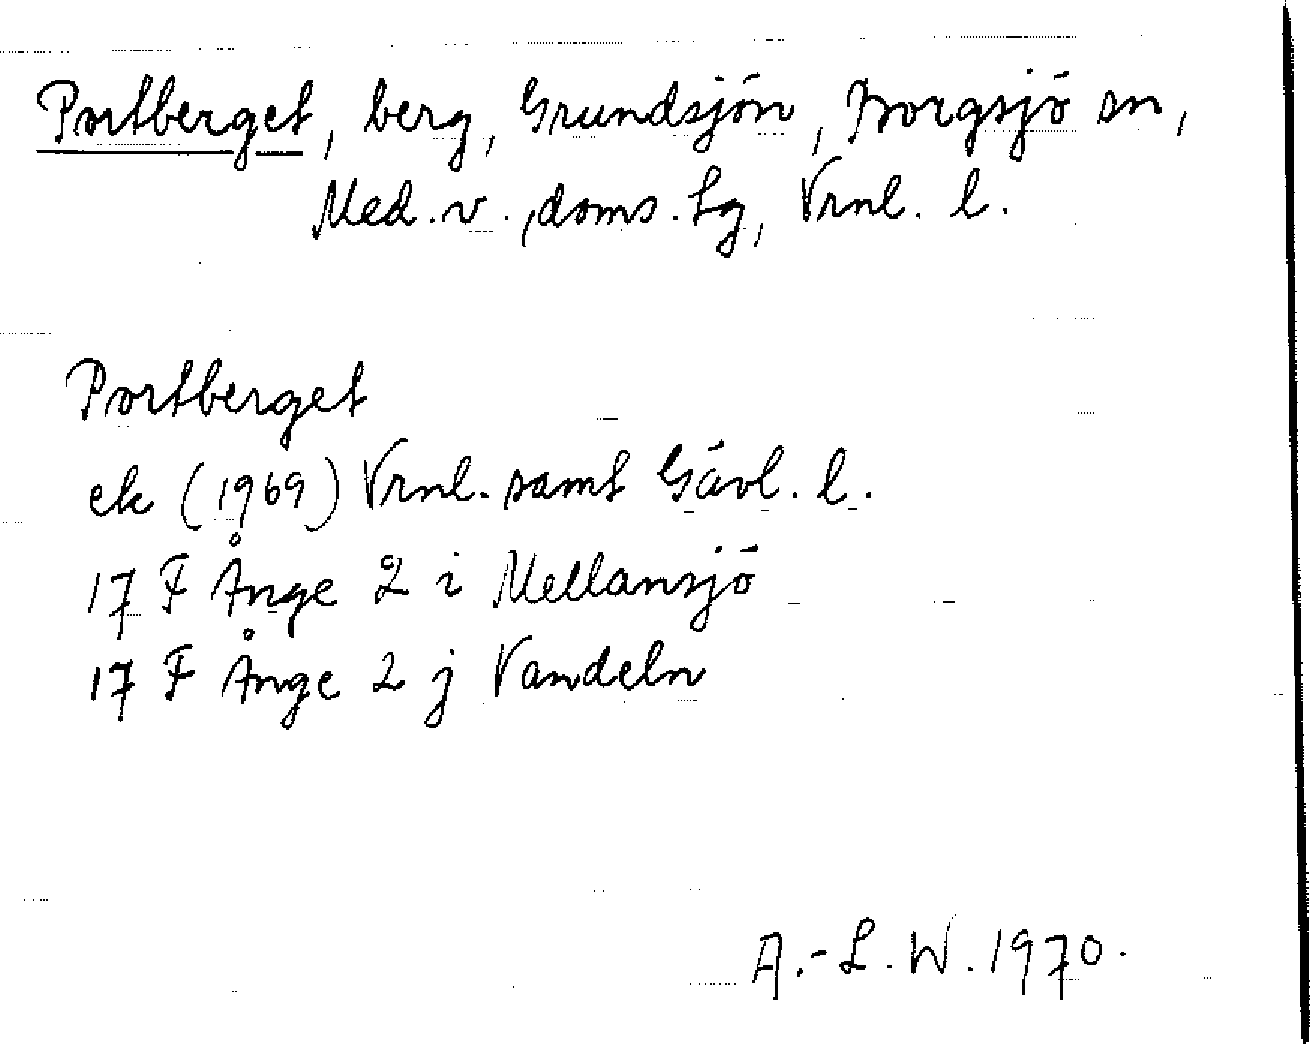 Portberget, berg, Grundsjön, Borgsjö sn,
Med. v., doms. hg, Vrnl. l.
Portberget
ek (1969) Vrnl. samt Gävl. l.
17 F Ånge 2 i Mellansjö
17 F Ånge 2 j Vandeln
A.-L. W. 1970.